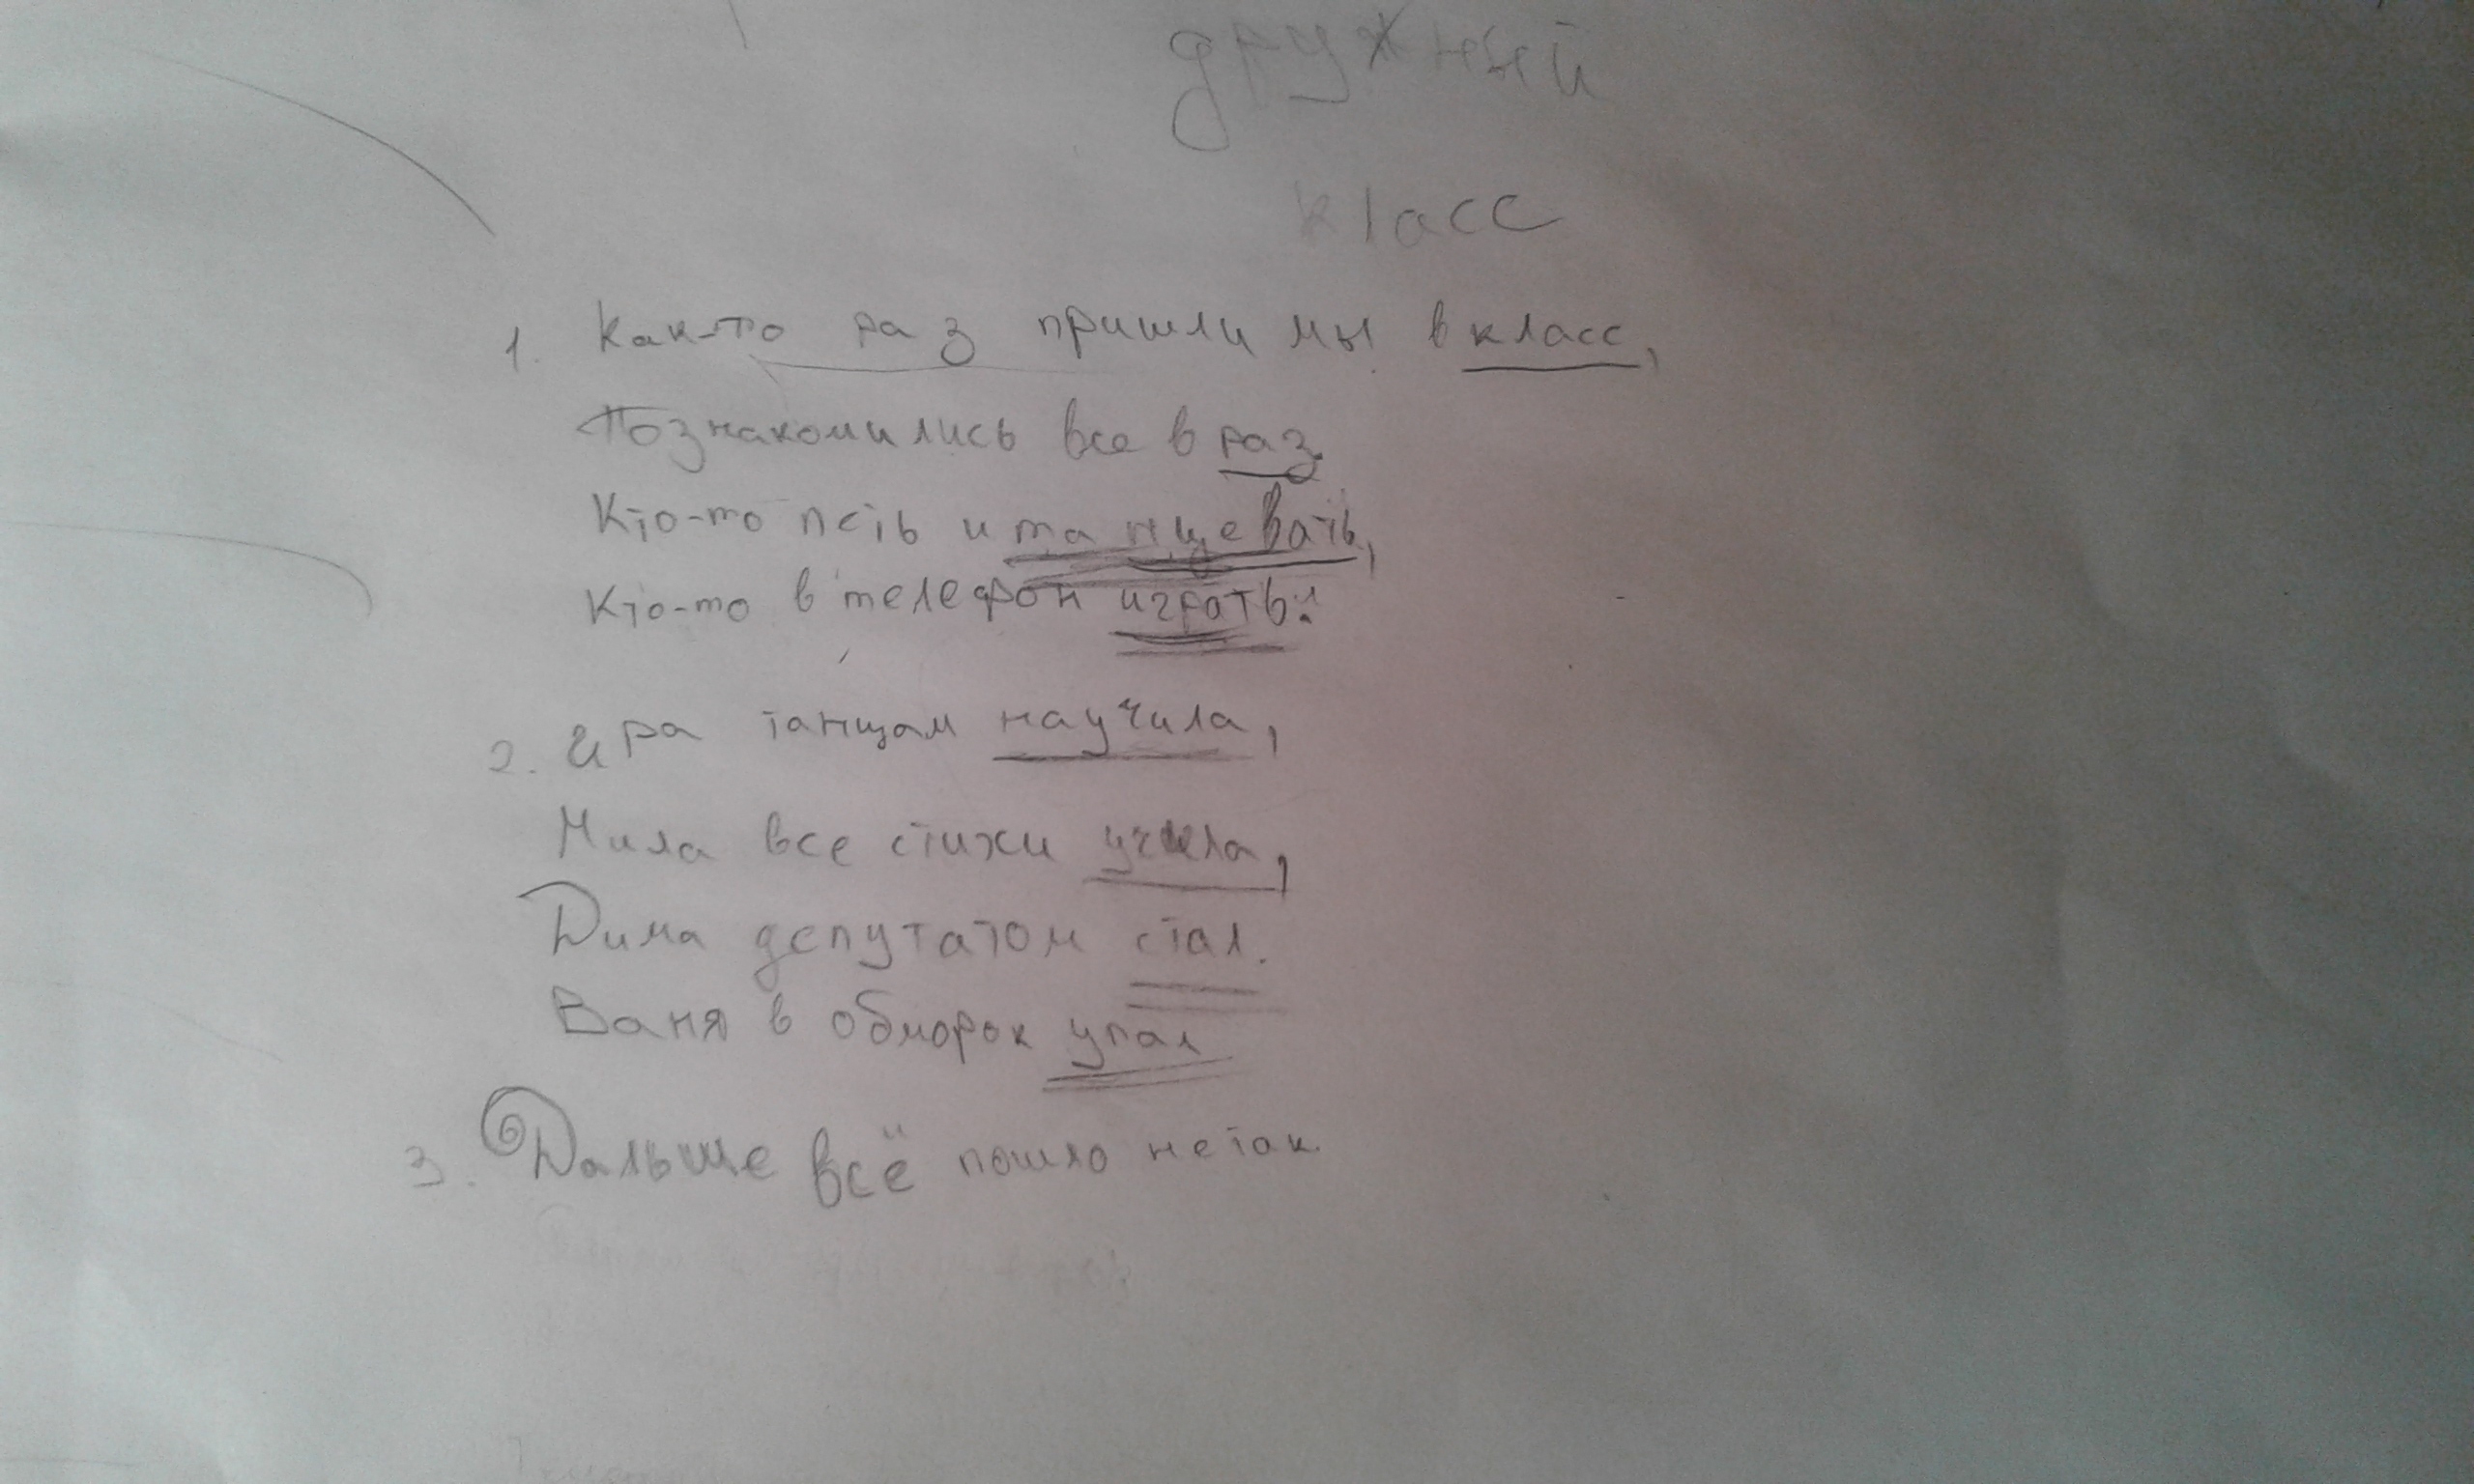 дружный
класс
1. Как-то раз пришли мы в класс,
Познакомились все в раз
Кто-то петь и танцевать,
Кто-то в телефон играть.
2. Ира танцам научила,
Мила все стихи учила,
Дима депутатом стал.
Ваня в обморок упал
3. Дальше всё пошло не так.